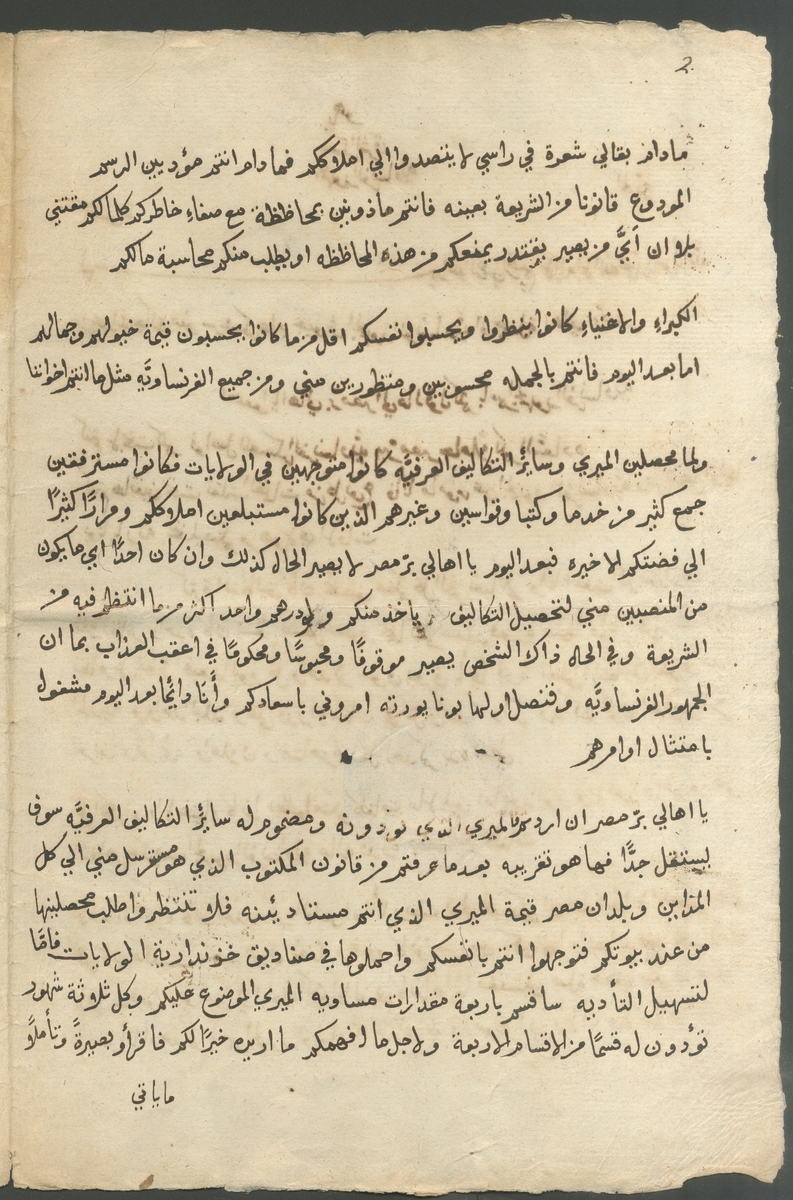 2
مادام بقالي شعرة في راسي لا يتصدوا الي املاككم فمادام انتم مؤديين الرسم
المودوع قانونا من الشريعة بعينه فانتم ماذونين بمحافظة مع صفاء خاطركم كلما لكم مقتني
بلا وان أيَّ من يصير يقتدر يمنعكم من هذه المحافظه او يطلب منكم محاسبة مالكم
الكبراء والاغنياء كانوا ينظروا ويحسبوا نفسكم اقل من ما كانوا يحسبون قيمة خيولهم وجمالهم
اما بعد اليوم فانتم بالجمله محسوبين ومنظورين مني ومن جميع الفرنساويَّه مثل ما انتم اخواننا
ولما محصلين الميري وسايرُ التكاليف العرفيَّه كانوا متوجهين في الولايات فكانوا مسترفقين
جمع كثير من خدما وكتبا وقواسين وغيرهم الذين كانوا مستبلعين املاككم ومرارًا كثيرًا
الي فضتكم الاخيره فبعد اليوم يا اهالي برّ مصر لا يصير الحال كذلك وان كان احدًا اي ما يكون
من المنصبين مني لتحصيل التكاليف ياخذ منكم ولو درهم واحد اكثر من ما انتظم فيه من
الشريعة وفي الحال ذاك الشخص يصير موقوفًا ومحبوسًا ومحكومًا في اعقب العزاب بما ان
الجمهور الفرنساويَّه وقنصل اولها بونابورته امروني باسعادكم وأنا دايمًا بعد اليوم مشغول
بامتثال اوامرهم
يا اهالي برّ مصر ان اردتم الميري الذي تودونه ومضموم له سايرُ التكاليف العرفيَّه سوف
يستثقل جدًّا فها هو تقريبه بعد ما عرفتم من قانون المكتوب الذي هو مسترسل مني الي كل
المداين وبلدان مصر قيمة الميري الذي انتم مستاديينه فلا تنتظروا طلب محصلينها
من عند بيوتكم فتوجهوا انتم بانفسكم واحملوها في صناديق خزندارية الولايات فامّا
لتسهيل التأديه ساقسم باربعة مقدارات مساويه الميري الموضوع عليكم وكل ثلاثة شهور
تؤدون له قسمًا من الاقسام الاربعة ولاجل ما افهمكم ما اريده خيرًا لكم فاقرأو بصيرةً وتأملاً
ما ياتي